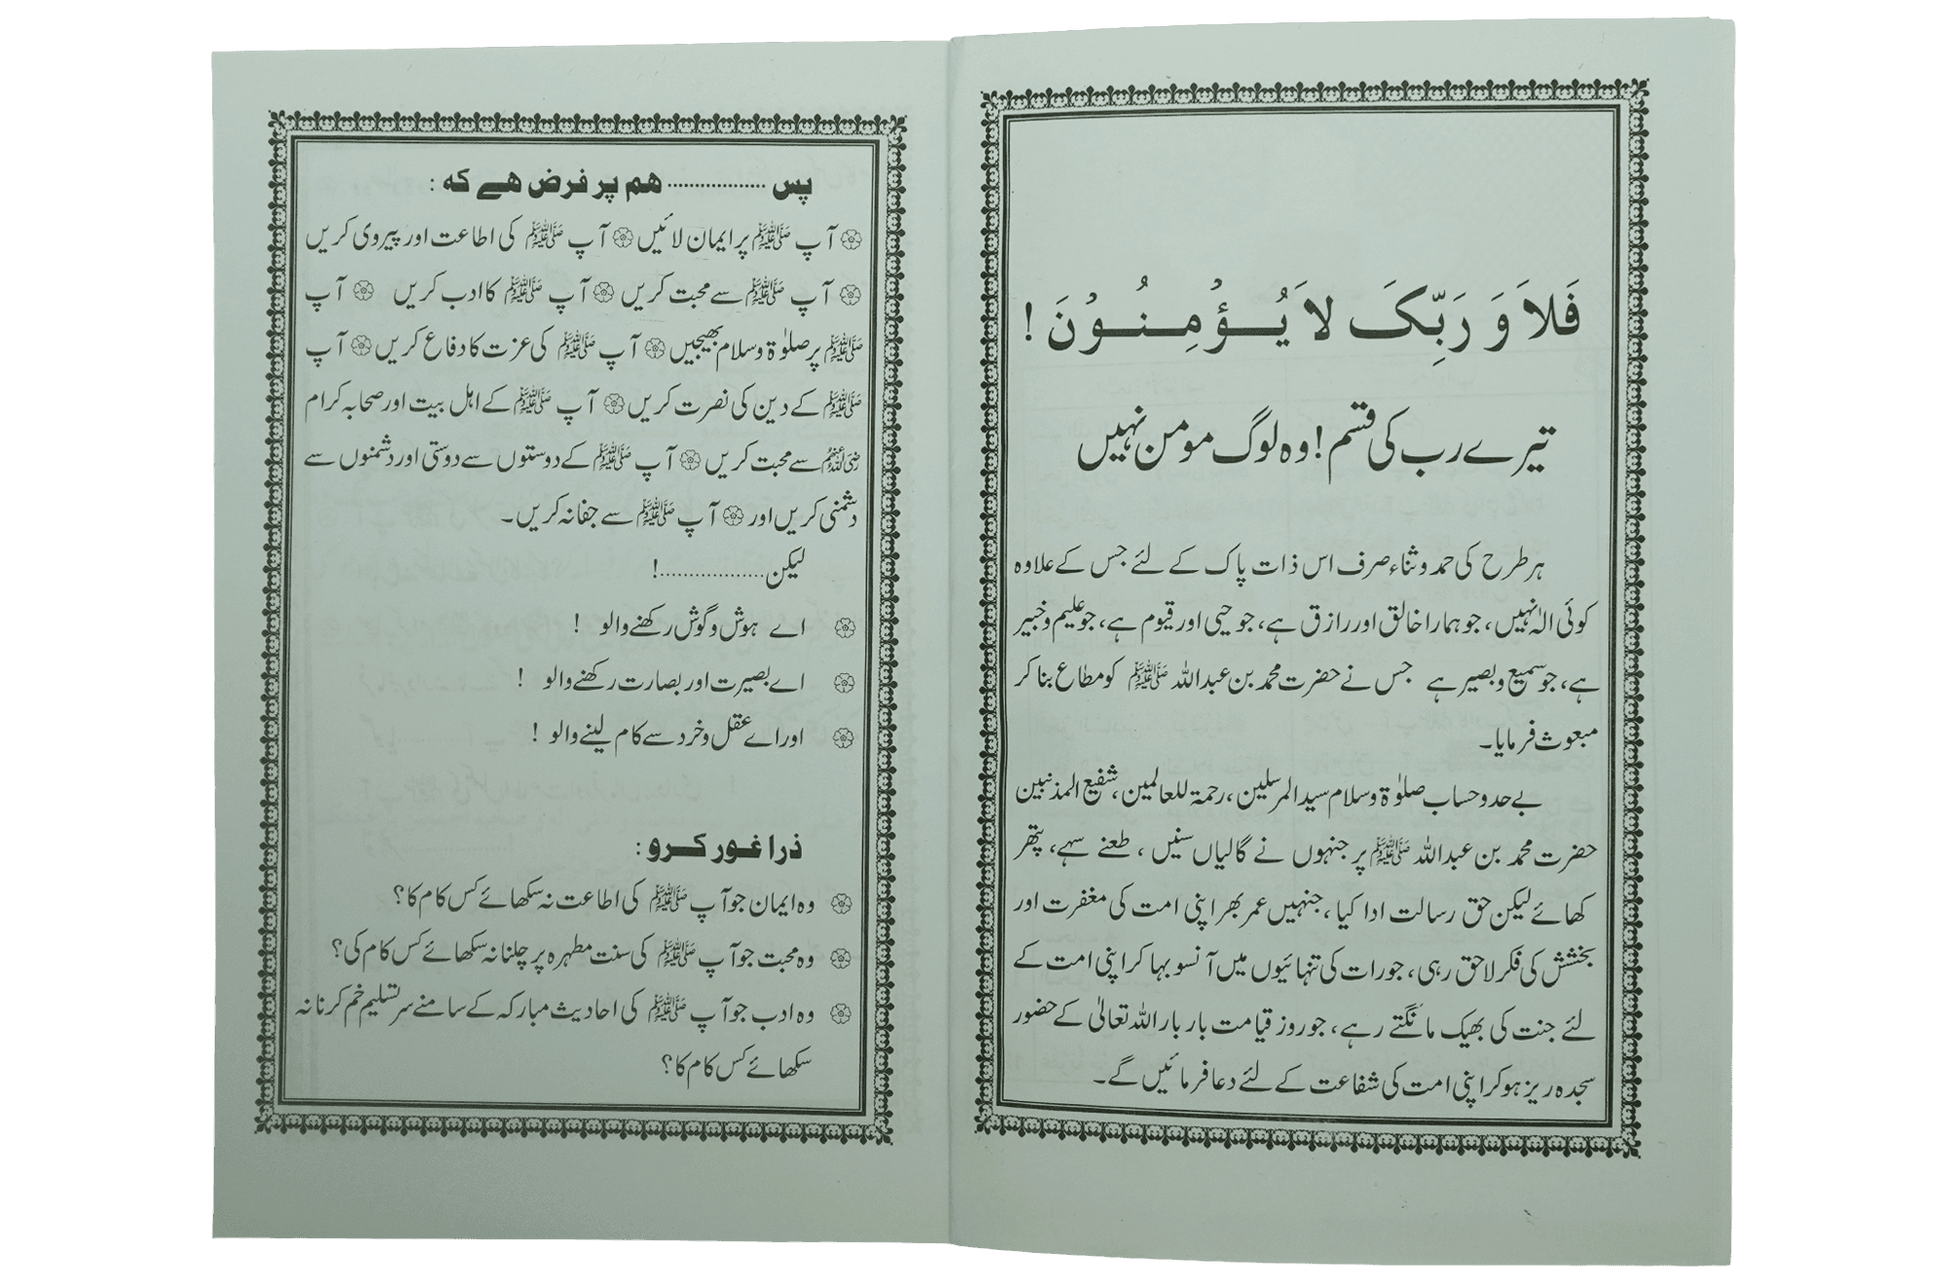 فَلاَ وَ رَبِّکَ لاَ یُؤْمِنُوْنَ !
تیرے رب کی قسم ! وہ لوگ مومن نہیں
ہر طرح کی حمد و ثناء صرف اس ذات پاک کے لئے جس کے علاوہ
کوئی الٰہ نہیں، جو ہمارا خالق اور رازق ہے، جو حیی اور قیوم ہے، جو علیم و خبیر
ہے، جو سمیع و بصیر ہے جس نے حضرت محمد بن عبداللہ ﷺ کو مطاع بنا کر
مبعوث فرمایا۔
بے حد و حساب صلوٰۃ و سلام سید المرسلین، رحمۃ للعالمین، شفیع المذنبین
حضرت محمد بن عبداللہ ﷺ پر جنہوں نے گالیاں سنیں، طعنے سہے، پتھر
کھائے لیکن حق رسالت ادا کیا، جنہیں عمر بھر اپنی امت کی مغفرت اور
بخشش کی فکر لاحق رہی، جو رات کی تنہائیوں میں آنسو بہا کر اپنی امت کے
لئے جنت کی بھیک مانگتے رہے، جو روز قیامت بار بار اللہ تعالیٰ کے حضور
سجدہ ریز ہو کر اپنی امت کی شفاعت کے لئے دعا فرمائیں گے۔
پس .................. ہم پر فرض ہے کہ :
۞ آپ ﷺ پر ایمان لائیں ۞ آپ ﷺ کی اطاعت اور پیروی کریں
۞ آپ ﷺ سے محبت کریں ۞ آپ ﷺ کا ادب کریں ۞ آپ
ﷺ پر صلوٰۃ و سلام بھیجیں ۞ آپ ﷺ کی عزت کا دفاع کریں ۞ آپ
ﷺ کے دین کی نصرت کریں ۞ آپ ﷺ کے اہل بیت اور صحابہ کرام
رضی اللہ عنہم سے محبت کریں ۞ آپ ﷺ کے دوستوں سے دوستی اور دشمنوں سے
دشمنی کریں اور ۞ آپ ﷺ سے جفا نہ کریں۔
لیکن..................!
۞ اے ہوش و گوش رکھنے والو !
۞ اے بصیرت اور بصارت رکھنے والو !
۞ اور اے عقل و خرد سے کام لینے والو !
ذرا غور کرو :
۞ وہ ایمان جو آپ ﷺ کی اطاعت نہ سکھائے کس کام کا؟
۞ وہ محبت جو آپ ﷺ کی سنت مطہرہ پر چلنا نہ سکھائے کس کام کی؟
۞ وہ ادب جو آپ ﷺ کی احادیث مبارکہ کے سامنے سر تسلیم خم کرنا نہ
سکھائے کس کام کا؟